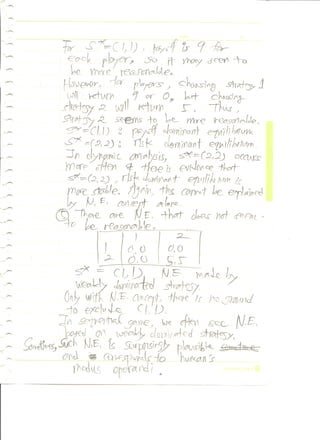 For S*=(1,1), payoff is 9 for
each player, so it may seem to
be more reasonable.
However, for players, choosing strategy 1
will return 9 or 0, but choosing
strategy 2 will return 5. Thus,
Strategy 2 seems to be more reasonable.
S*=(1,1) : payoff dominant equilibrium
S*=(2,2) : risk dominant equilibrium.
In dynamic analysis, S*=(2,2) occurs
more often & there is evidence that
S*=(2,2), risk dominant equilibrium is
more stable. Again, this cannot be explained
by N.E. concept alone.
There are N.E. that does not
to be reasonable.
1 2
1 0,0 0,0
2 0,0 5,5
S* = (1,1), NE made by
weakly dominated strategy.
Only with N.E. concept, there is no ground
to exclude (1,1).
In sequential game, we often see N.E.
based on weakly dominated strategy.
Sometimes, such N.E. is surprisingly plausible
and corresponds to human's
modus operandi.